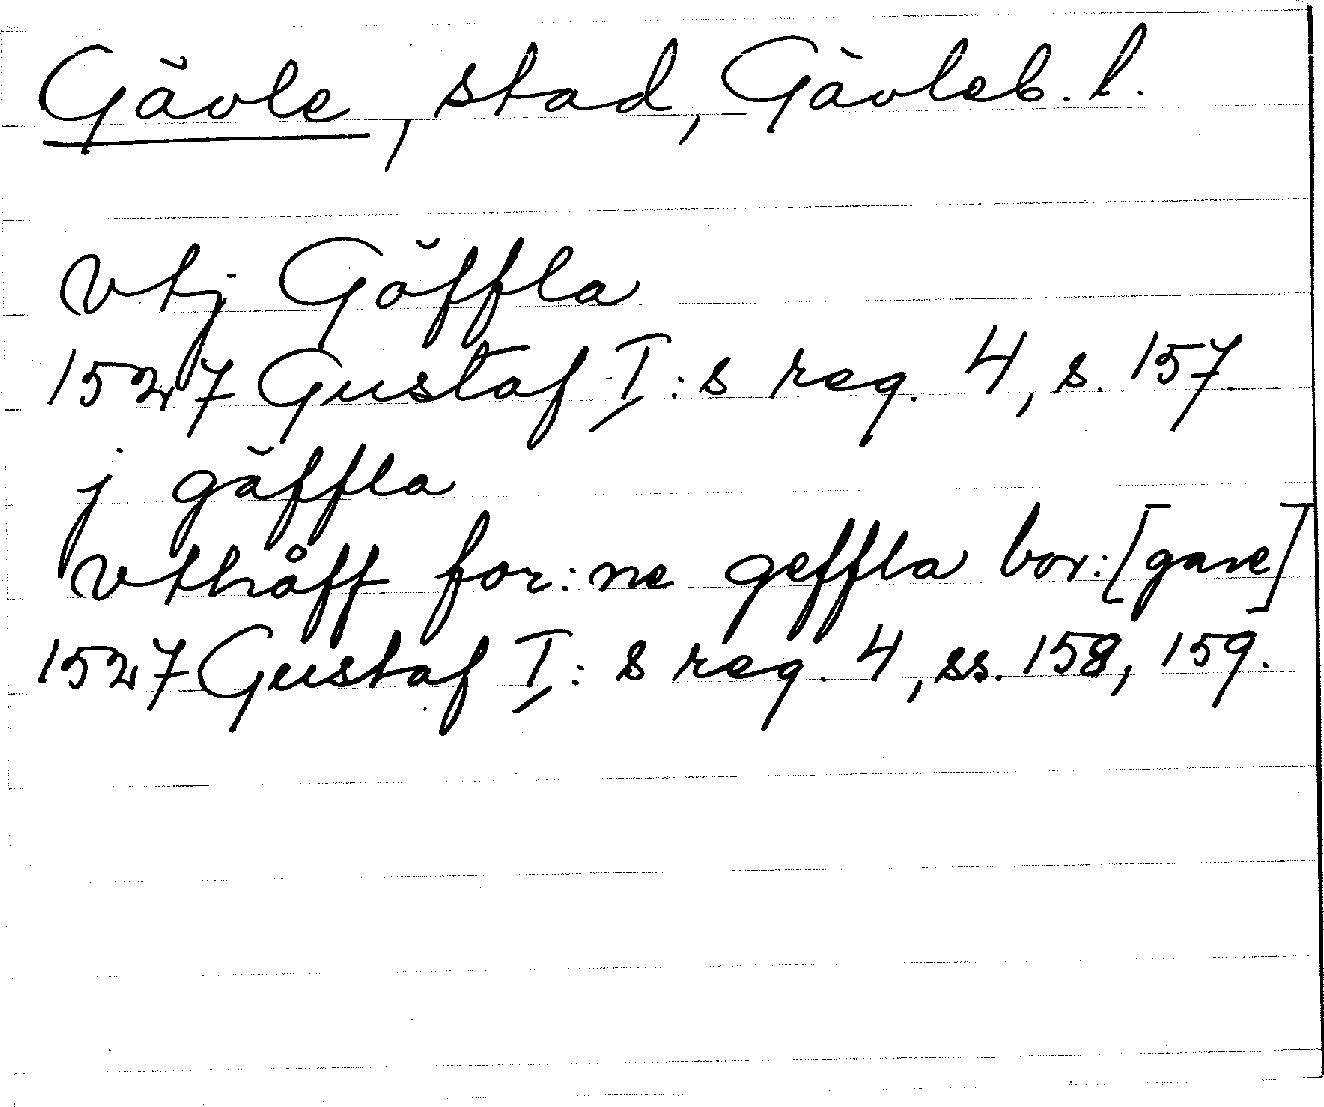 Gävle, stad, Gävleb. l.
vtj Göffla
1527 Gustaf I:s reg. 4, s. 157.
j gäffla
vthåff for:ne geffla bor:[gare]
1527 Gustaf I:s reg. 4, ss. 158, 159.